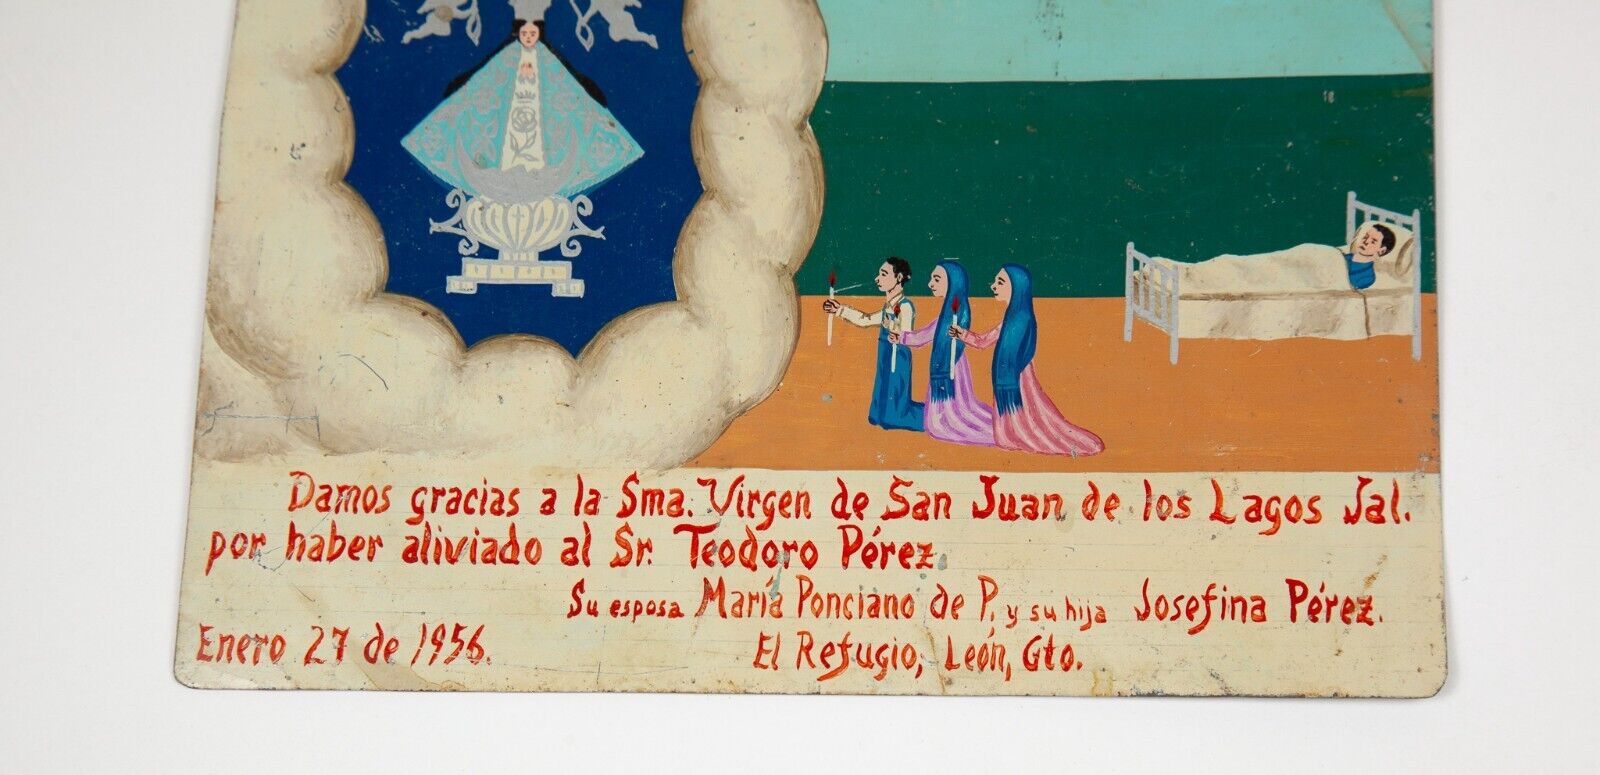 Damos gracias a la Sma. Virgen de San Juan de los Lagos Jal.
por haber aliviado al Sr. Teodoro Pérez.
Su esposa María Ponciano de P. y su hija Josefina Pérez.
Enero 27 de 1956. El Refugio, León, Gto.